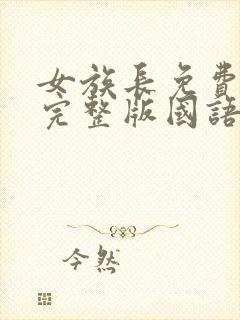 女族長免費
完整版國語
今然